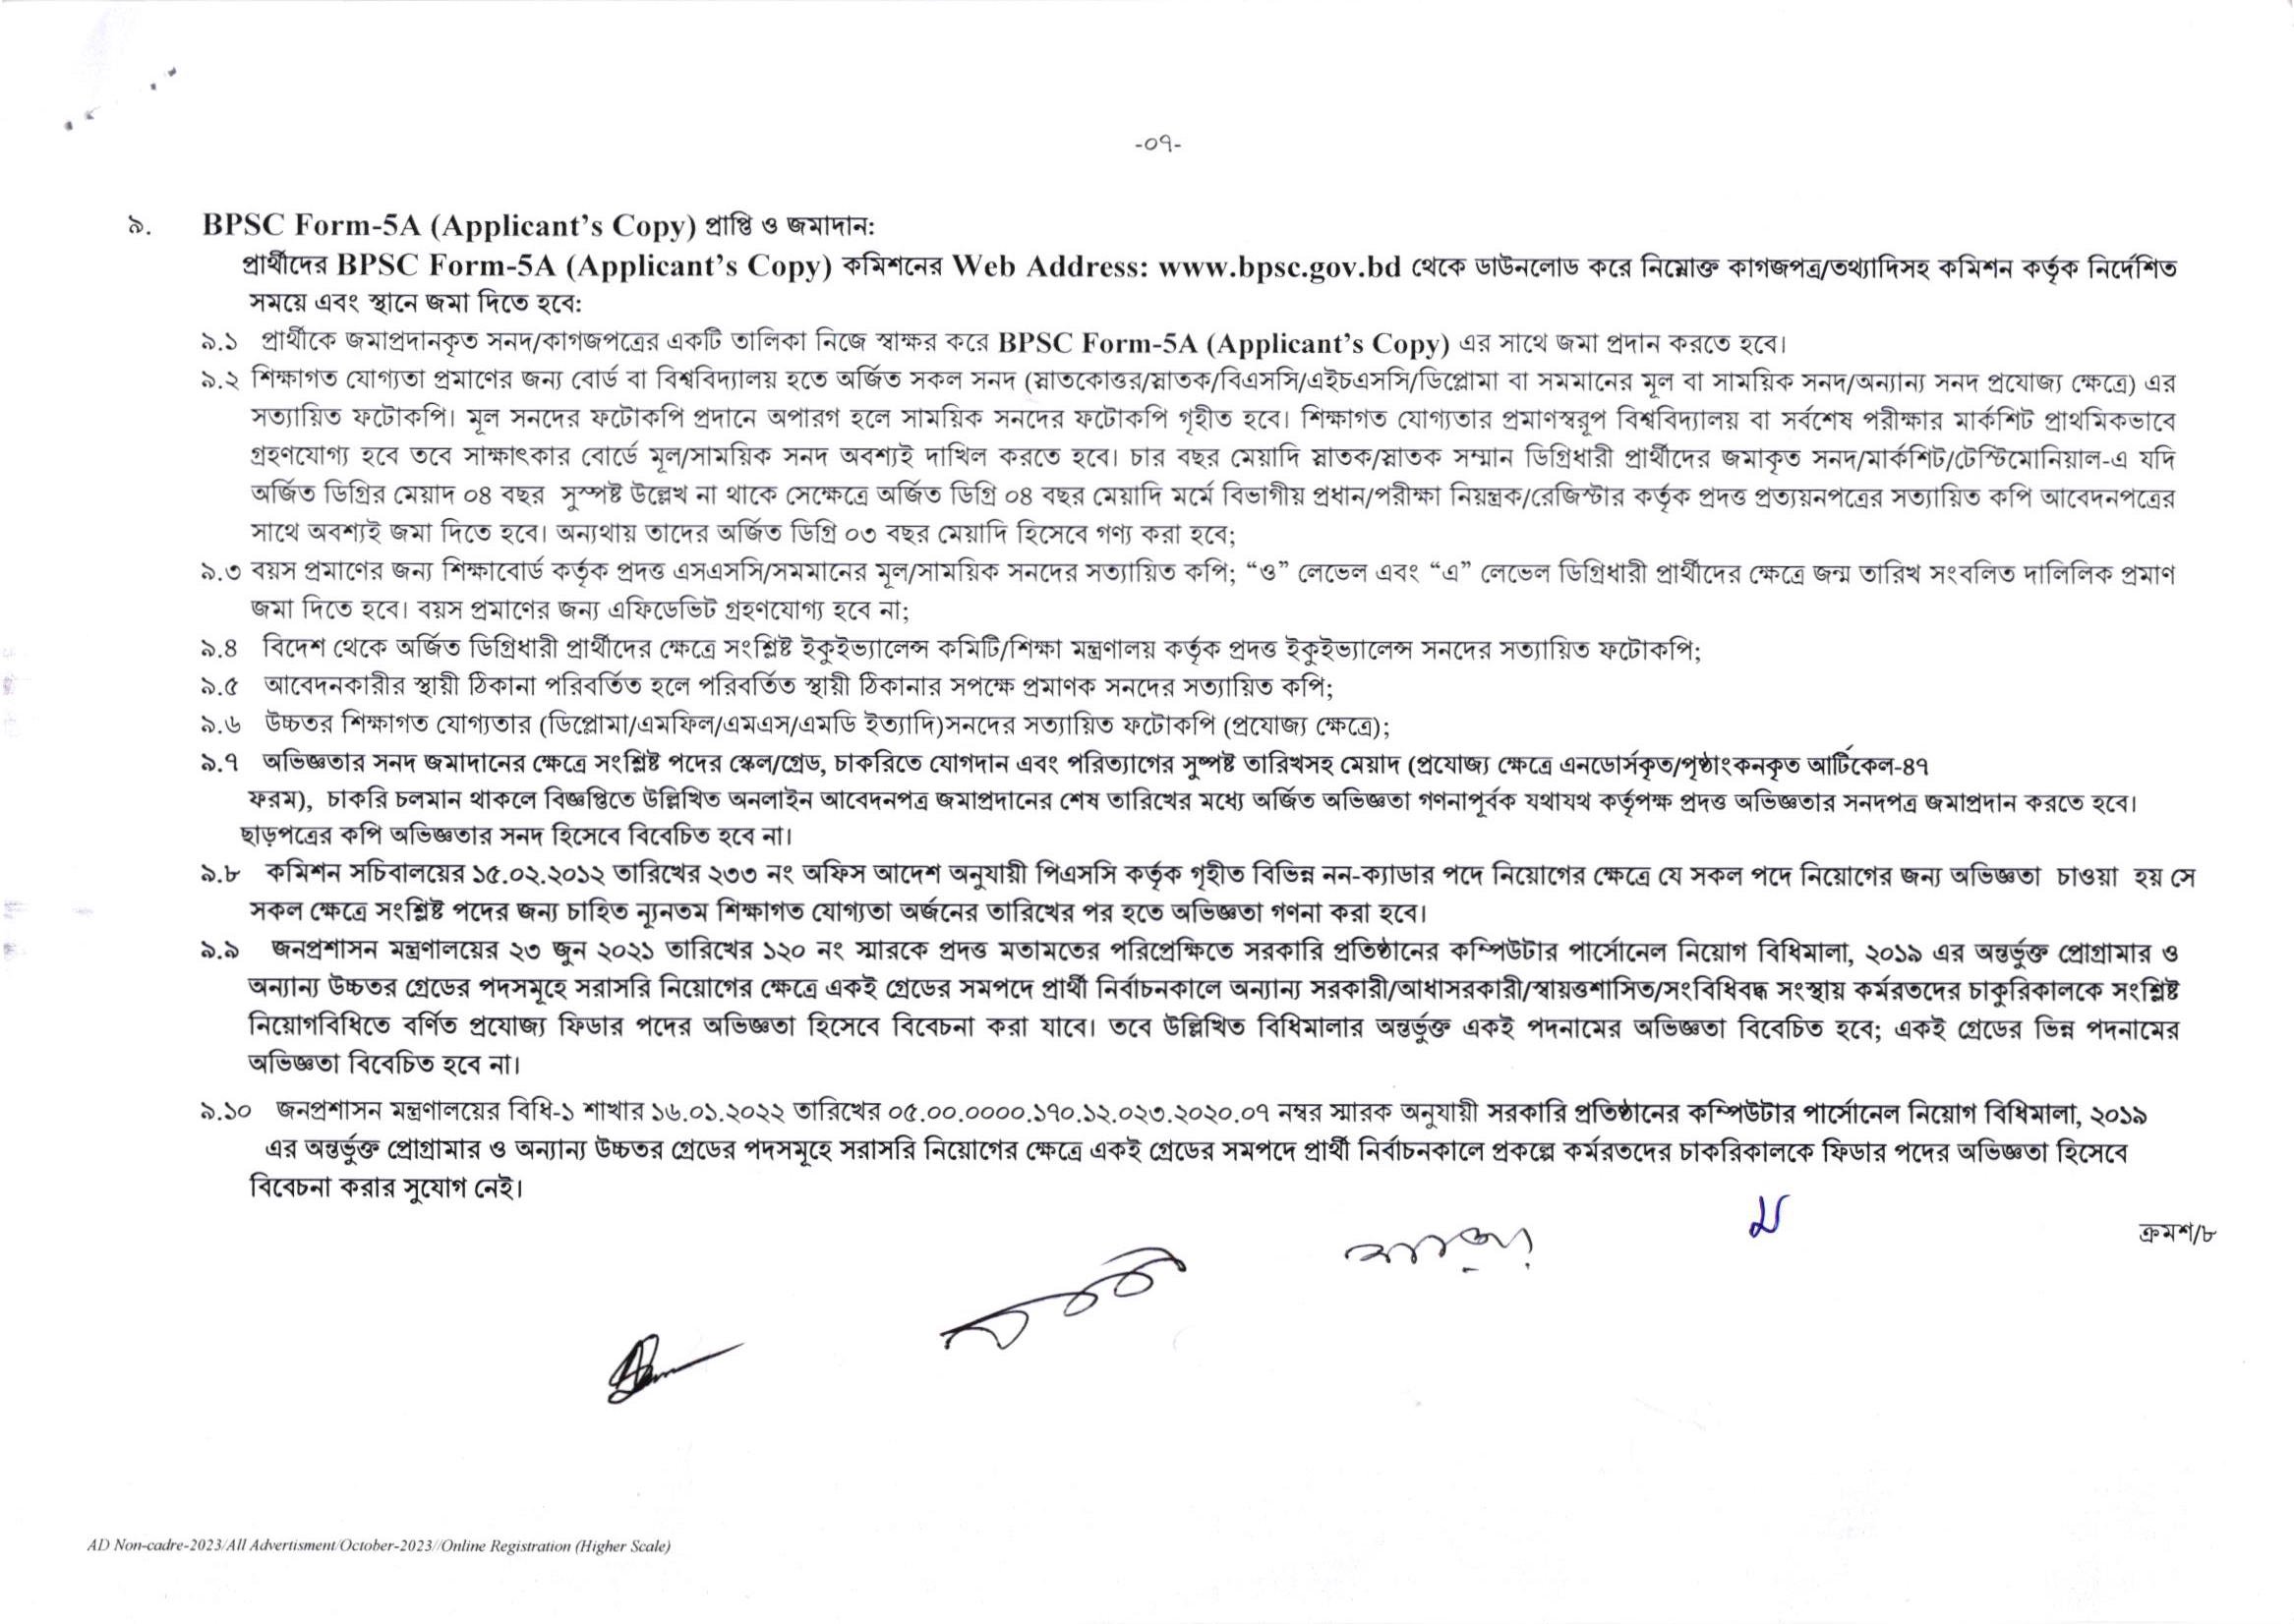 -০৭-
৯. BPSC Form-5A (Applicant’s Copy) প্রাপ্তি ও জমাদান:
প্রার্থীদের BPSC Form-5A (Applicant’s Copy) কমিশনের Web Address: www.bpsc.gov.bd থেকে ডাউনলোড করে নিম্নোক্ত কাগজপত্র/তথ্যাদিসহ কমিশন কর্তৃক নির্দেশিত
সময়ে এবং স্থানে জমা দিতে হবে:
৯.১ প্রার্থীকে জমাপ্রদানকৃত সনদ/কাগজপত্রের একটি তালিকা নিজে স্বাক্ষর করে BPSC Form-5A (Applicant’s Copy) এর সাথে জমা প্রদান করতে হবে।
৯.২ শিক্ষাগত যোগ্যতা প্রমাণের জন্য বোর্ড বা বিশ্ববিদ্যালয় হতে অর্জিত সকল সনদ (স্নাতকোত্তর/স্নাতক/বিএসসি/এইচএসসি/ডিপ্লোমা বা সমমানের মূল বা সাময়িক সনদ/অন্যান্য সনদ প্রযোজ্য ক্ষেত্রে) এর
সত্যায়িত ফটোকপি। মূল সনদের ফটোকপি প্রদানে অপারগ হলে সাময়িক সনদের ফটোকপি গৃহীত হবে। শিক্ষাগত যোগ্যতার প্রমাণস্বরূপ বিশ্ববিদ্যালয় বা সর্বশেষ পরীক্ষার মার্কশিট প্রাথমিকভাবে
গ্রহণযোগ্য হবে তবে সাক্ষাৎকার বোর্ডে মূল/সাময়িক সনদ অবশ্যই দাখিল করতে হবে। চার বছর মেয়াদি স্নাতক/স্নাতক সম্মান ডিগ্রিধারী প্রার্থীদের জমাকৃত সনদ/মার্কশিট/টেস্টিমোনিয়াল-এ যদি
অর্জিত ডিগ্রির মেয়াদ ০৪ বছর সুস্পষ্ট উল্লেখ না থাকে সেক্ষেত্রে অর্জিত ডিগ্রি ০৪ বছর মেয়াদি মর্মে বিভাগীয় প্রধান/পরীক্ষা নিয়ন্ত্রক/রেজিস্টার কর্তৃক প্রদত্ত প্রত্যয়নপত্রের সত্যায়িত কপি আবেদনপত্রের
সাথে অবশ্যই জমা দিতে হবে। অন্যথায় তাদের অর্জিত ডিগ্রি ০৩ বছর মেয়াদি হিসেবে গণ্য করা হবে;
৯.৩ বয়স প্রমাণের জন্য শিক্ষাবোর্ড কর্তৃক প্রদত্ত এসএসসি/সমমানের মূল/সাময়িক সনদের সত্যায়িত কপি; “ও” লেভেল এবং “এ” লেভেল ডিগ্রিধারী প্রার্থীদের ক্ষেত্রে জন্ম তারিখ সংবলিত দালিলিক প্রমাণ
জমা দিতে হবে। বয়স প্রমাণের জন্য এফিডেভিট গ্রহণযোগ্য হবে না;
৯.৪ বিদেশ থেকে অর্জিত ডিগ্রিধারী প্রার্থীদের ক্ষেত্রে সংশ্লিষ্ট ইকুইভ্যালেন্স কমিটি/শিক্ষা মন্ত্রণালয় কর্তৃক প্রদত্ত ইকুইভ্যালেন্স সনদের সত্যায়িত ফটোকপি;
৯.৫ আবেদনকারীর স্থায়ী ঠিকানা পরিবর্তিত হলে পরিবর্তিত স্থায়ী ঠিকানার সপক্ষে প্রমাণক সনদের সত্যায়িত কপি;
৯.৬ উচ্চতর শিক্ষাগত যোগ্যতার (ডিপ্লোমা/এমফিল/এমএস/এমডি ইত্যাদি)সনদের সত্যায়িত ফটোকপি (প্রযোজ্য ক্ষেত্রে);
৯.৭ অভিজ্ঞতার সনদ জমাদানের ক্ষেত্রে সংশ্লিষ্ট পদের স্কেল/গ্রেড, চাকরিতে যোগদান এবং পরিত্যাগের সুষ্পষ্ট তারিখসহ মেয়াদ (প্রযোজ্য ক্ষেত্রে এনডোর্সকৃত/পৃষ্ঠাংকনকৃত আর্টিকেল-৪৭
ফরম), চাকরি চলমান থাকলে বিজ্ঞপ্তিতে উল্লিখিত অনলাইন আবেদনপত্র জমাপ্রদানের শেষ তারিখের মধ্যে অর্জিত অভিজ্ঞতা গণনাপূর্বক যথাযথ কর্তৃপক্ষ প্রদত্ত অভিজ্ঞতার সনদপত্র জমাপ্রদান করতে হবে।
ছাড়পত্রের কপি অভিজ্ঞতার সনদ হিসেবে বিবেচিত হবে না।
৯.৮ কমিশন সচিবালয়ের ১৫.০২.২০১২ তারিখের ২৩৩ নং অফিস আদেশ অনুযায়ী পিএসসি কর্তৃক গৃহীত বিভিন্ন নন-ক্যাডার পদে নিয়োগের ক্ষেত্রে যে সকল পদে নিয়োগের জন্য অভিজ্ঞতা চাওয়া হয় সে
সকল ক্ষেত্রে সংশ্লিষ্ট পদের জন্য চাহিত ন্যূনতম শিক্ষাগত যোগ্যতা অর্জনের তারিখের পর হতে অভিজ্ঞতা গণনা করা হবে।
৯.৯ জনপ্রশাসন মন্ত্রণালয়ের ২৩ জুন ২০২১ তারিখের ১২০ নং স্মারকে প্রদত্ত মতামতের পরিপ্রেক্ষিতে সরকারি প্রতিষ্ঠানের কম্পিউটার পার্সোনেল নিয়োগ বিধিমালা, ২০১৯ এর অন্তর্ভুক্ত প্রোগ্রামার ও
অন্যান্য উচ্চতর গ্রেডের পদসমূহে সরাসরি নিয়োগের ক্ষেত্রে একই গ্রেডের সমপদে প্রার্থী নির্বাচনকালে অন্যান্য সরকারী/আধাসরকারী/স্বায়ত্তশাসিত/সংবিধিবদ্ধ সংস্থায় কর্মরতদের চাকুরিকালকে সংশ্লিষ্ট
নিয়োগবিধিতে বর্ণিত প্রযোজ্য ফিডার পদের অভিজ্ঞতা হিসেবে বিবেচনা করা যাবে। তবে উল্লিখিত বিধিমালার অন্তর্ভুক্ত একই পদনামের অভিজ্ঞতা বিবেচিত হবে; একই গ্রেডের ভিন্ন পদনামের
অভিজ্ঞতা বিবেচিত হবে না।
৯.১০ জনপ্রশাসন মন্ত্রণালয়ের বিধি-১ শাখার ১৬.০১.২০২২ তারিখের ০৫.০০.০০০০.১৭০.১২.০২৩.২০২০.০৭ নম্বর স্মারক অনুযায়ী সরকারি প্রতিষ্ঠানের কম্পিউটার পার্সোনেল নিয়োগ বিধিমালা, ২০১৯
এর অন্তর্ভুক্ত প্রোগ্রামার ও অন্যান্য উচ্চতর গ্রেডের পদসমূহে সরাসরি নিয়োগের ক্ষেত্রে একই গ্রেডের সমপদে প্রার্থী নির্বাচনকালে প্রকল্পে কর্মরতদের চাকরিকালকে ফিডার পদের অভিজ্ঞতা হিসেবে
বিবেচনা করার সুযোগ নেই।
ক্রমশ/৮
AD Non-cadre-2023/All Advertisment/October-2023//Online Registration (Higher Scale)